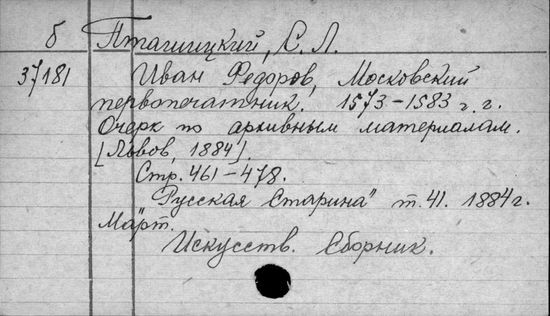 б Пташицкий, С. Л.
37181 Иван Федоров, Московский
первопечатник. 1573-1583 г. г.
Очерк по архивным материалам.
[Львов, 1884].
Стр. 461-478.
"Русская Старина" т. 41. 1884 г.
Март.
Искусств. Сборник.